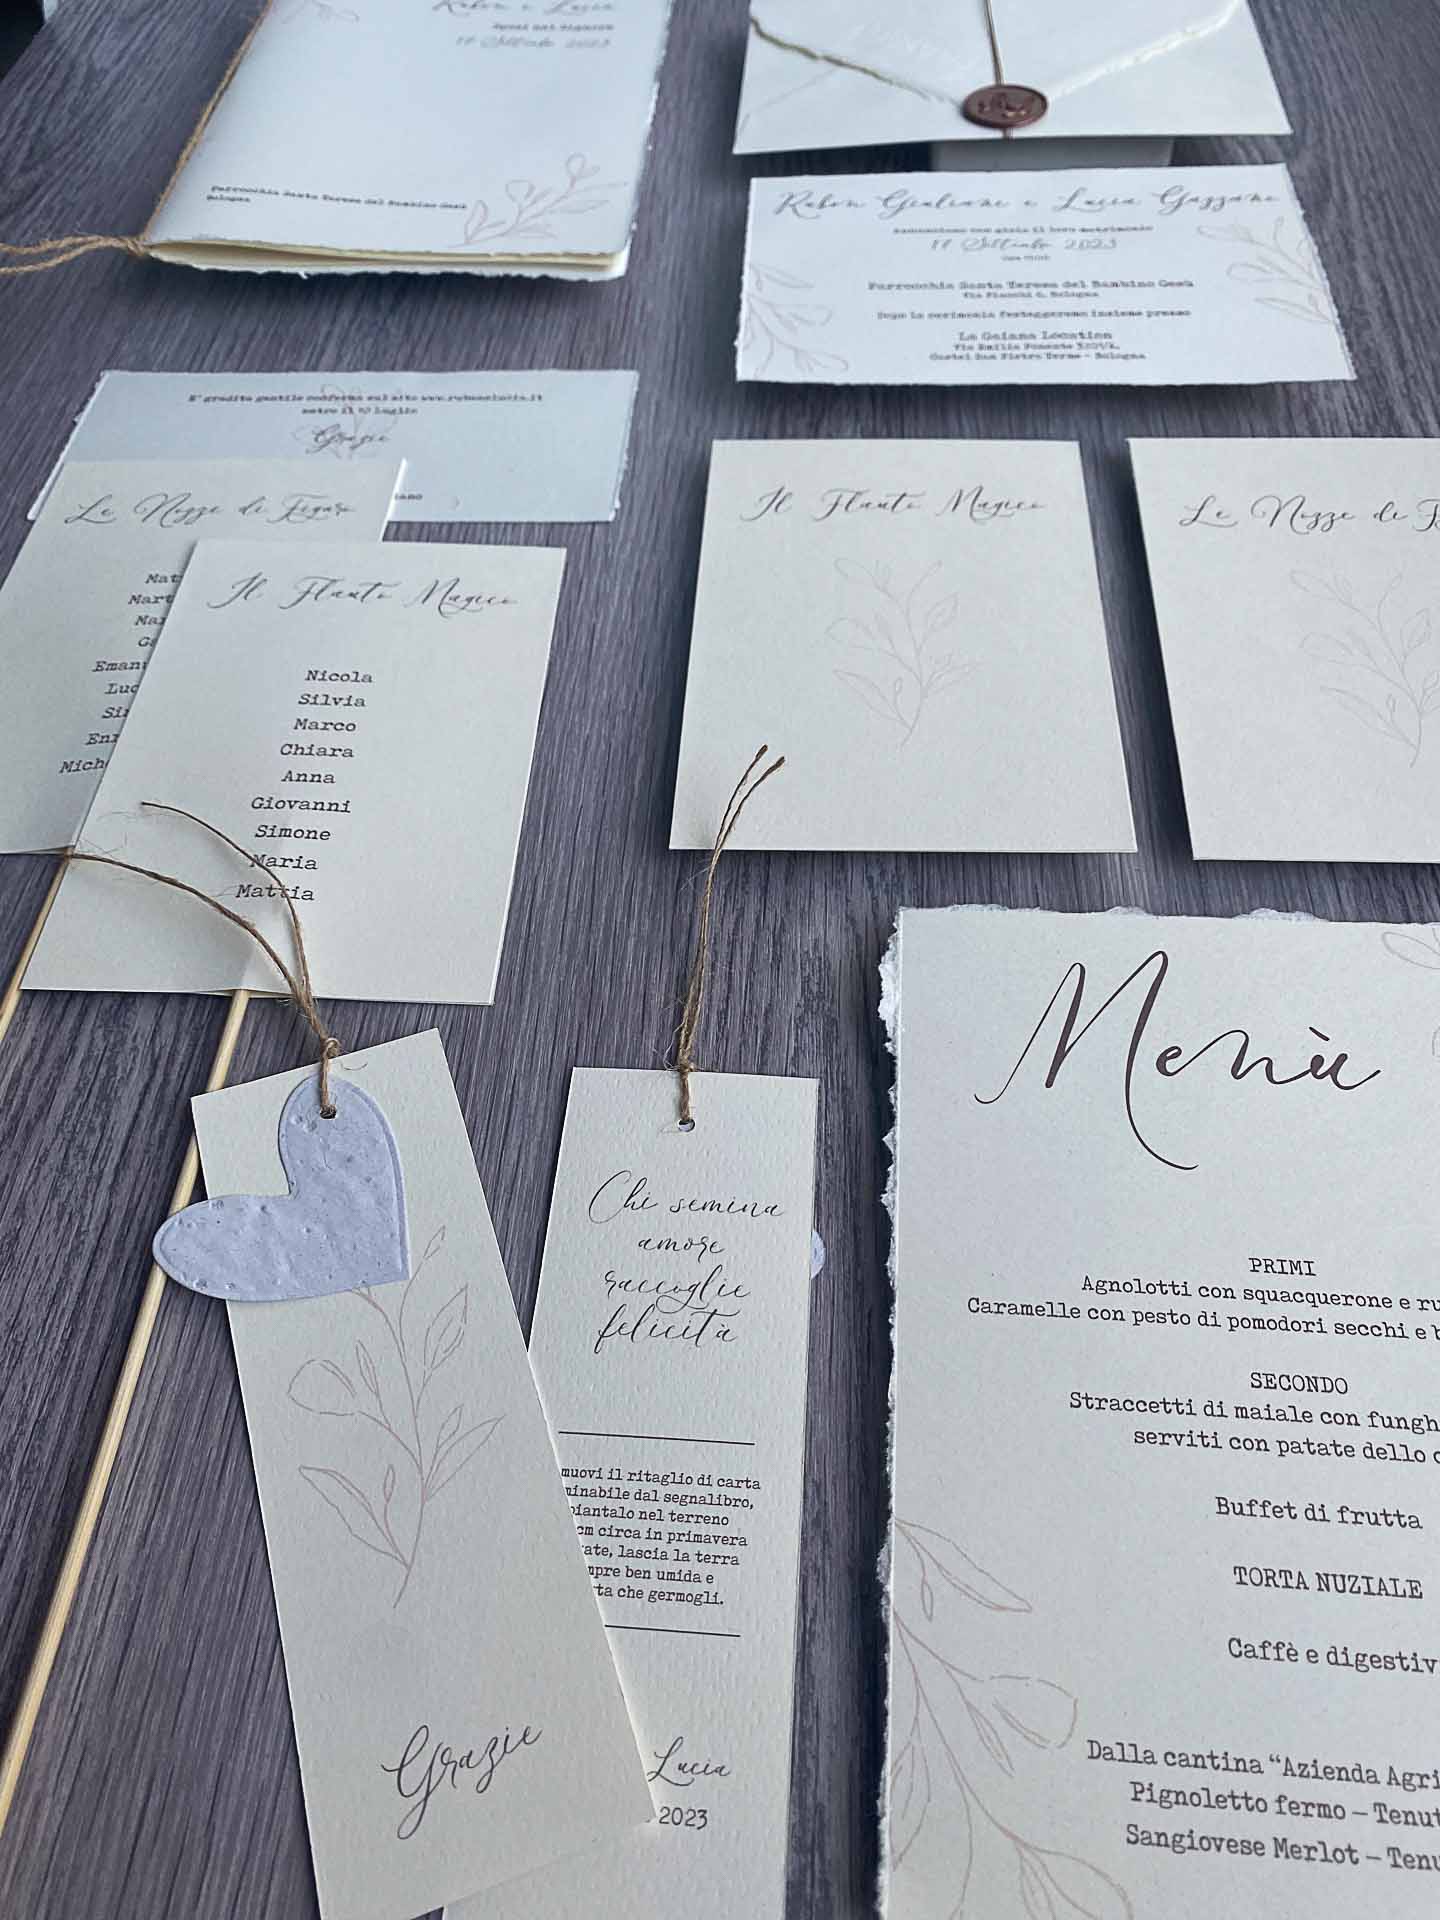 Ruben e Lucia
Sposi nel Signore
17 Settembre 2023
Parrocchia Santa Teresa del Bambino Gesù
Bologna
Ruben Giuliano e Lucia Gazzano
Annunciano con gioia il loro matrimonio
17 Settembre 2023
Parrocchia Santa Teresa del Bambino Gesù
Via Fiacchi 6, Bologna
Dopo la cerimonia festeggeremo insieme presso
La Gaiana Location
Via Emilia Ponente
Castel San Pietro Terme - Bologna
E' gradita gentile conferma sul sito
entro il
Grazie
Le Nozze di Figaro
Mat
Mart
Ma
Emanu
Luc
Si
En
Mich
Il Flauto Magico
Nicola
Silvia
Marco
Chiara
Anna
Giovanni
Simone
Maria
Mattia
Il Flauto Magico
Le Nozze di F
Grazie
Chi semina
amore
raccoglie
felicità
muovi il ritaglio di carta
minabile dal segnalibro,
piantalo nel terreno
cm circa in primavera
tate, lascia la terra
mpre ben umida e
ta che germogli.
Lucia
2023
Menù
PRIMI
Agnolotti con squacquerone e ru
Caramelle con pesto di pomodori secchi e b
SECONDO
Straccetti di maiale con fungh
serviti con patate dello c
Buffet di frutta
TORTA NUZIALE
Caffè e digestiv
Dalla cantina “Azienda Agri
Pignoletto fermo – Tenut
Sangiovese Merlot – Tenu